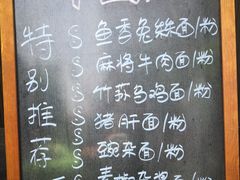 特别推荐
S 鱼香兔丝面/粉
S 麻将牛肉面/粉
S 竹荪乌鸡面/粉
S 猪肝面/粉
S 豌杂面/粉